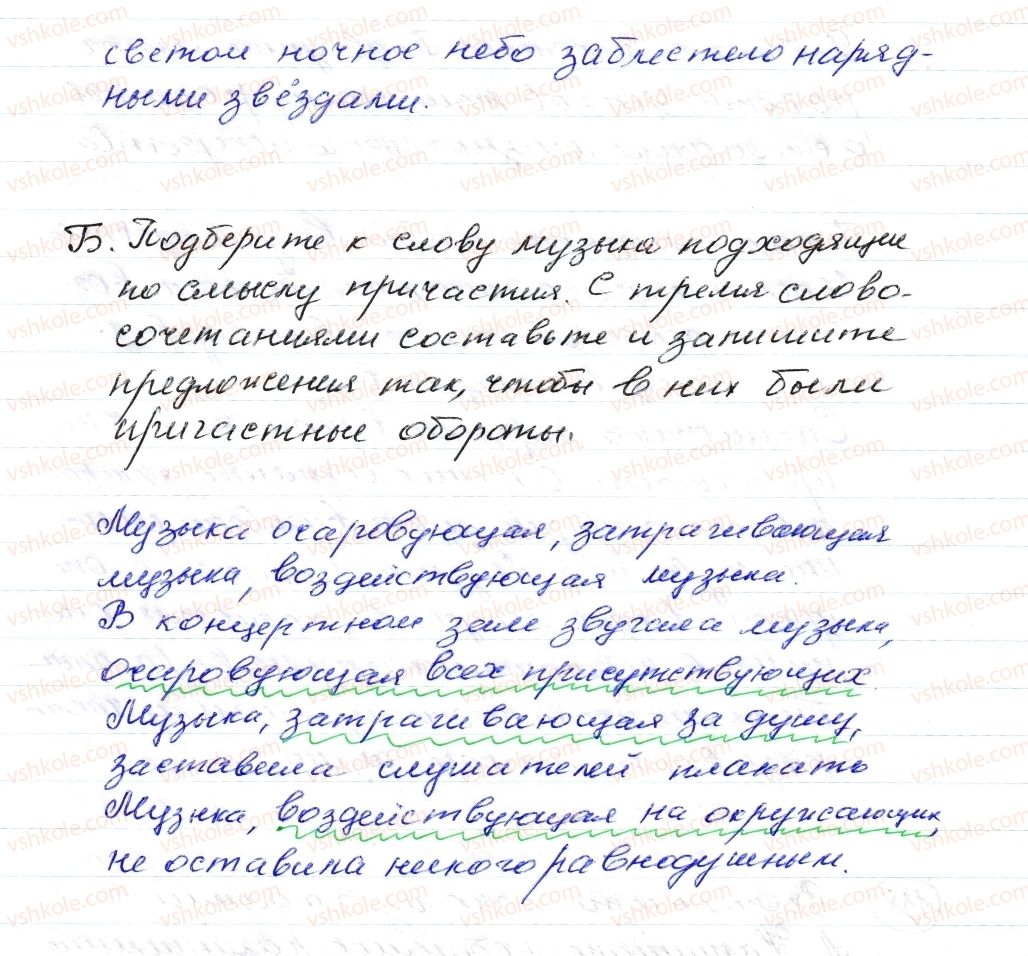 светом ночное небо заблестело наряд-
ными звёздами.
Б. Подберите к слову музыка подходящие
по смыслу причастия. С тремя слово-
сочетаниями составьте и запишите
предложения так, чтобы в них были
причастные обороты.
Музыка очаровующая, затрагивающая
музыка, воздействующая музыка.
В концертном зале звучала музыка,
очаровующая всех присутствующих.
Музыка, затрагивающая за душу,
заставила слушателей плакать
Музыка, воздействующая на окружающих,
не оставила никого равнодушным.